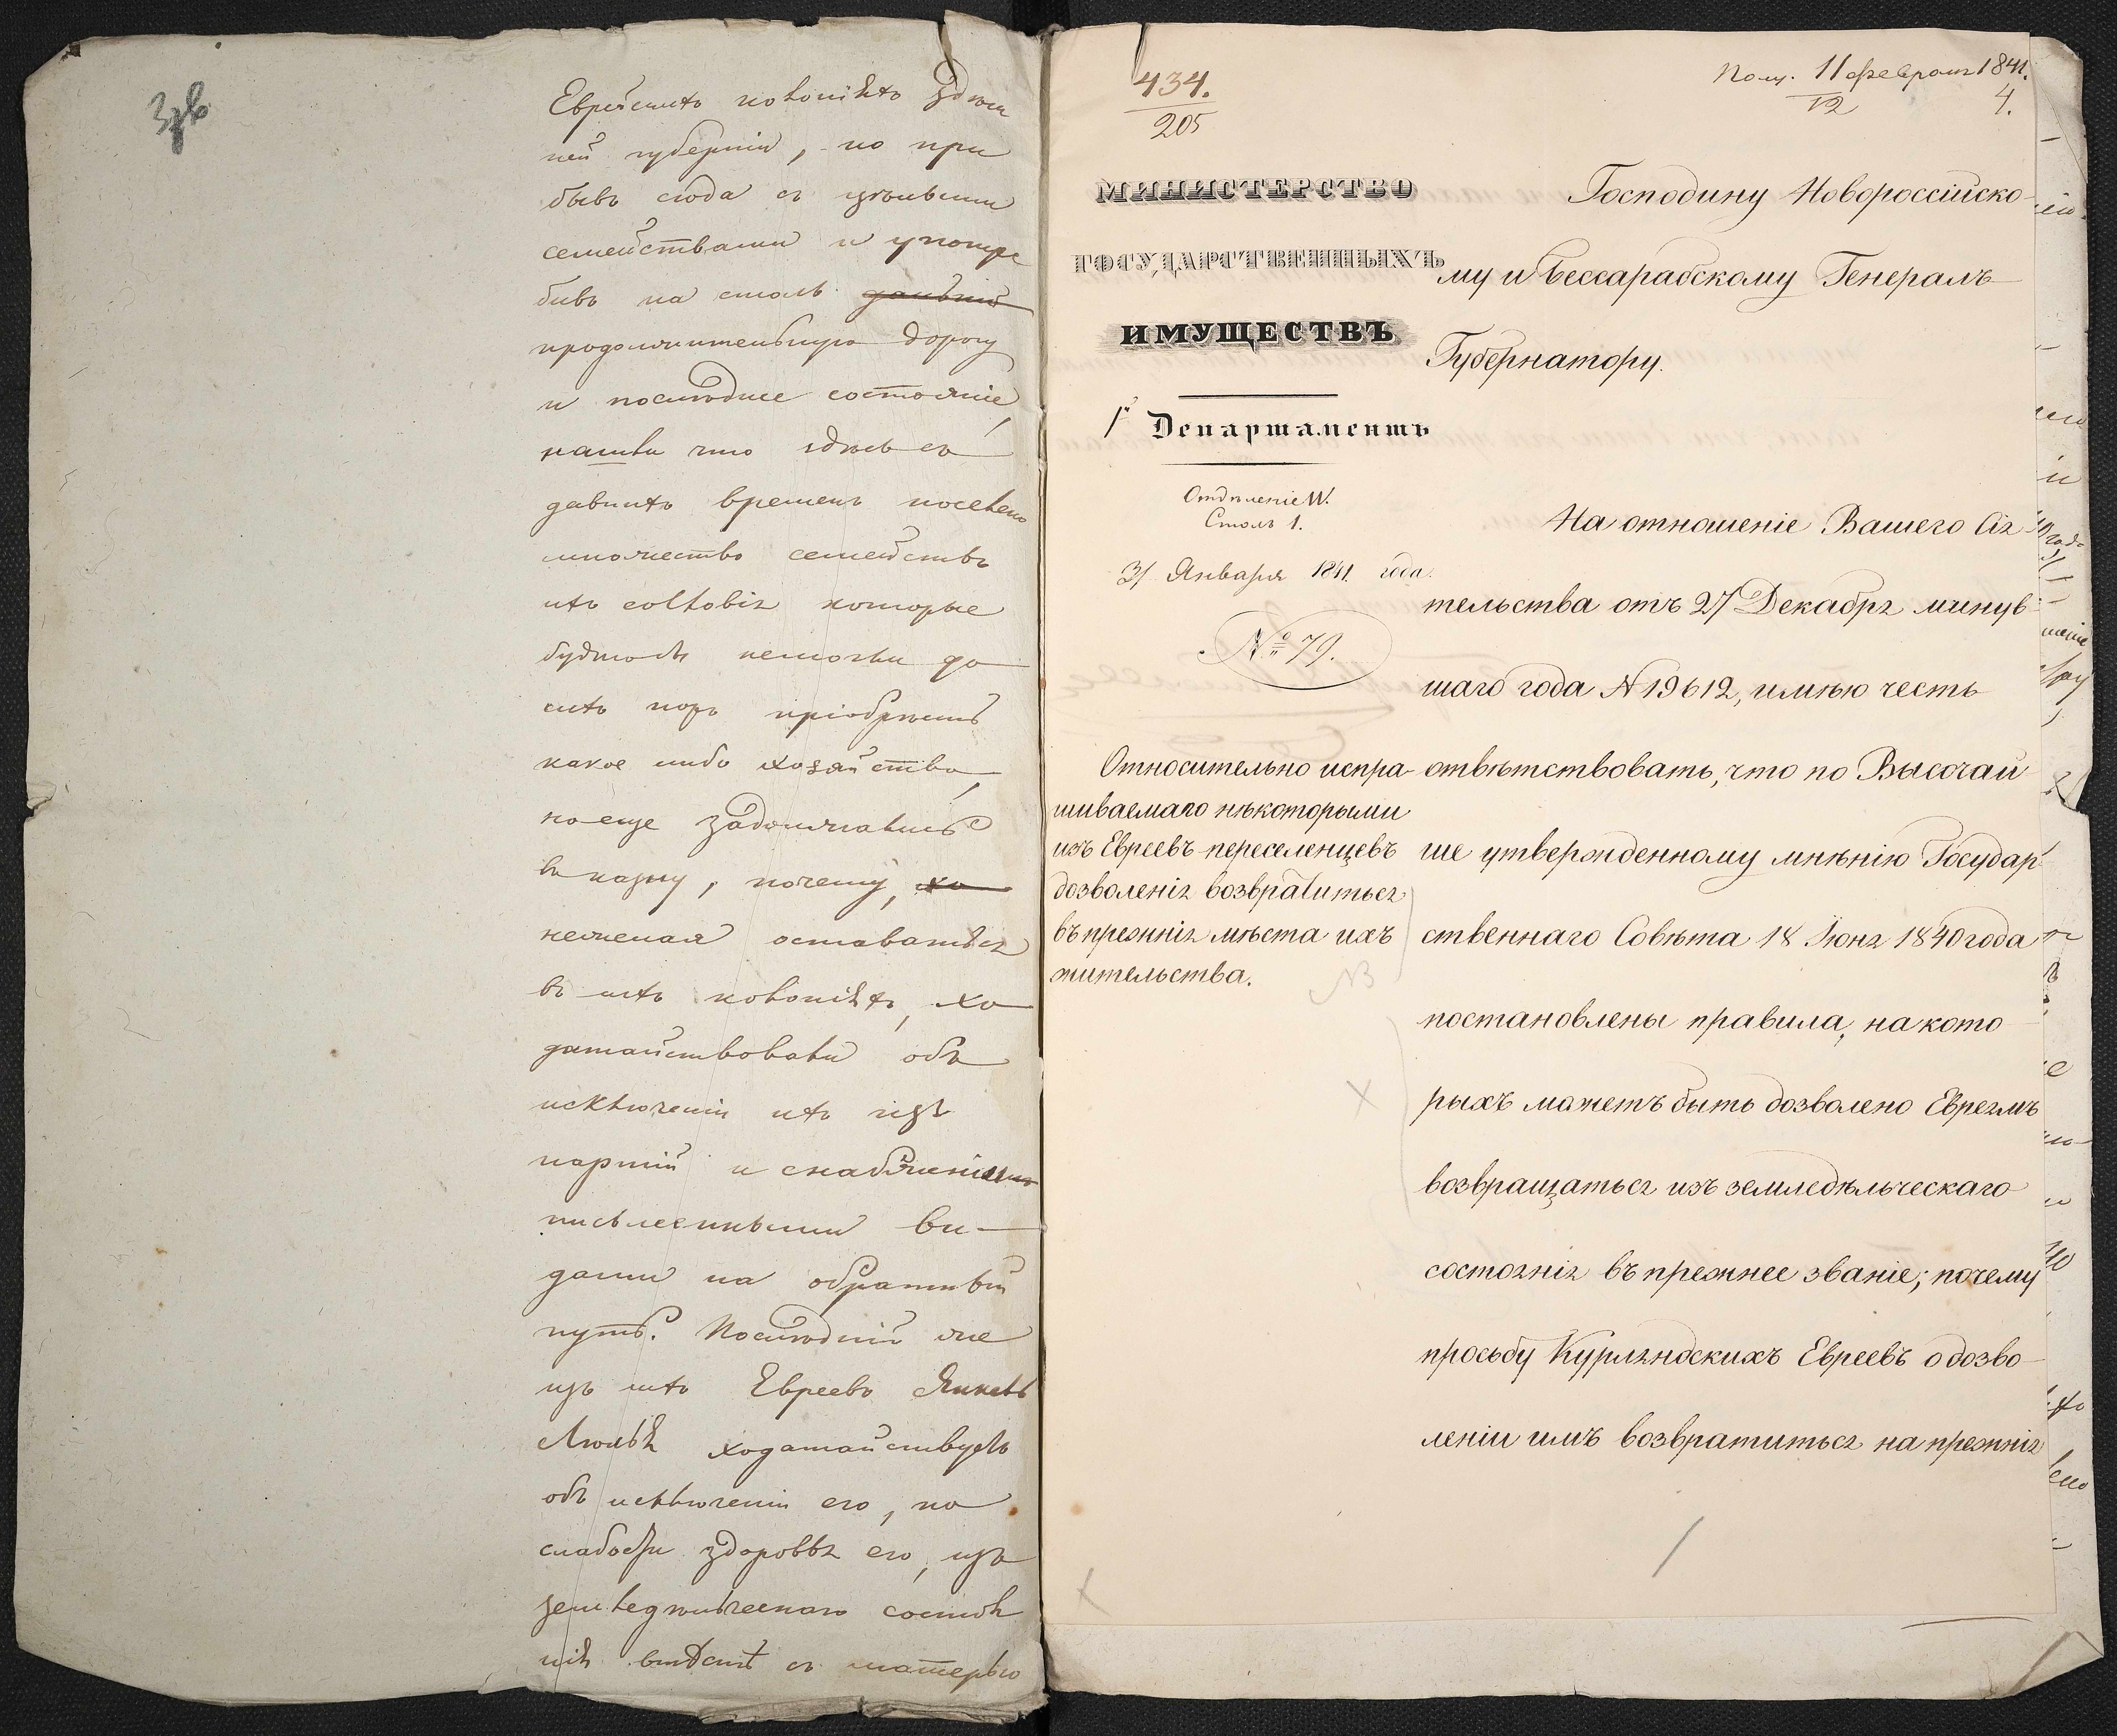 3 об
Еврейскихъ колоніяхъ здѣш
ней губерніи, но при
бывъ сюда съ цѣлыми
семействами и употре
бивъ на столь дальній
продолжительную дорогу
и послѣднее состояніе,
нашли что здѣсь съ
давнихъ временъ поселено
множество семействъ
ихъ собратій которые
будто не могли до
сихъ поръ пріобрѣсть
какое либо хозяйство,
но еще задолжались
въ казну, почему, хо
нежелая оставаться
въ сихъ колоніяхъ, хо
датайствовали объ
исключеніи ихъ изъ
партій и снабженіи
письменными ви-
дами на обратный
путь. Послѣдній же
изъ сихъ Евреевъ Янкель
ходатайствуетъ
объ исключеніи его, по
слабости здоровья его, изъ
земледѣльческаго состоя
нія вмѣстѣ съ матерью
434.
205
Полу. 11 февраля 1841.
12
4.
МИНИСТЕРСТВО
ГОСУДАРСТВЕННЫХЪ
ИМУЩЕСТВЪ
1й Департаментъ
Отдѣленіе IV.
Столъ 1.
31 Января 1841. года.
№ 79.
Относительно испра-
шиваемаго нѣкоторыми
изъ Евреевъ переселенцевъ
дозволенія возвратиться
въ прежнія мѣста ихъ
жительства.
NB
Господину Новороссійско-
му и Бессарабскому Генералъ
Губернатору.
На отношеніе Вашего Сія
тельства отъ 27 Декабря минув
шаго года N 19612, имѣю честь
отвѣтствовать, что по Высочай
ше утвержденному мнѣнію Государ
ственнаго Совѣта 18 Іюня 1840 года
постановлены правила, на кото
рыхъ можетъ быть дозволено Евреямъ
возвращаться изъ земледѣльческаго
состоянія въ прежнее званіе; почему
просьбу Курляндскихъ Евреевъ о дозво
леніи имъ возвратиться на прежнія